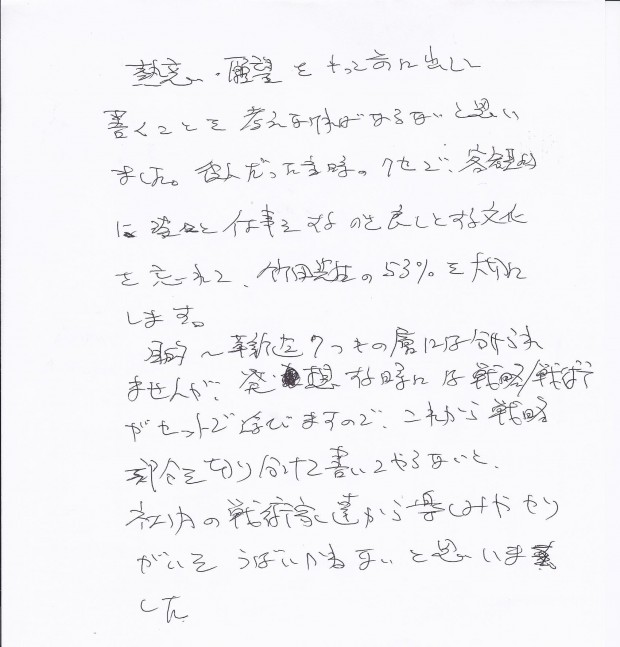 熱意・願望をもって前に出して
書くことを考えなければならないと思い
ました。役人だった当時のクセで、客観的
に淡々と仕事をするのを良しとする文化
を忘れて、竹田先生の53%を大切に
します。
〜革新迄7つもの層には分けられ
ませんが、発想する時には戦略/戦術
がセットで浮びますので、これから戦略
部分を切り分けて書いてやらないと、
社内の戦術家達から楽しみややり
がいをうばいかねないと思いま
した